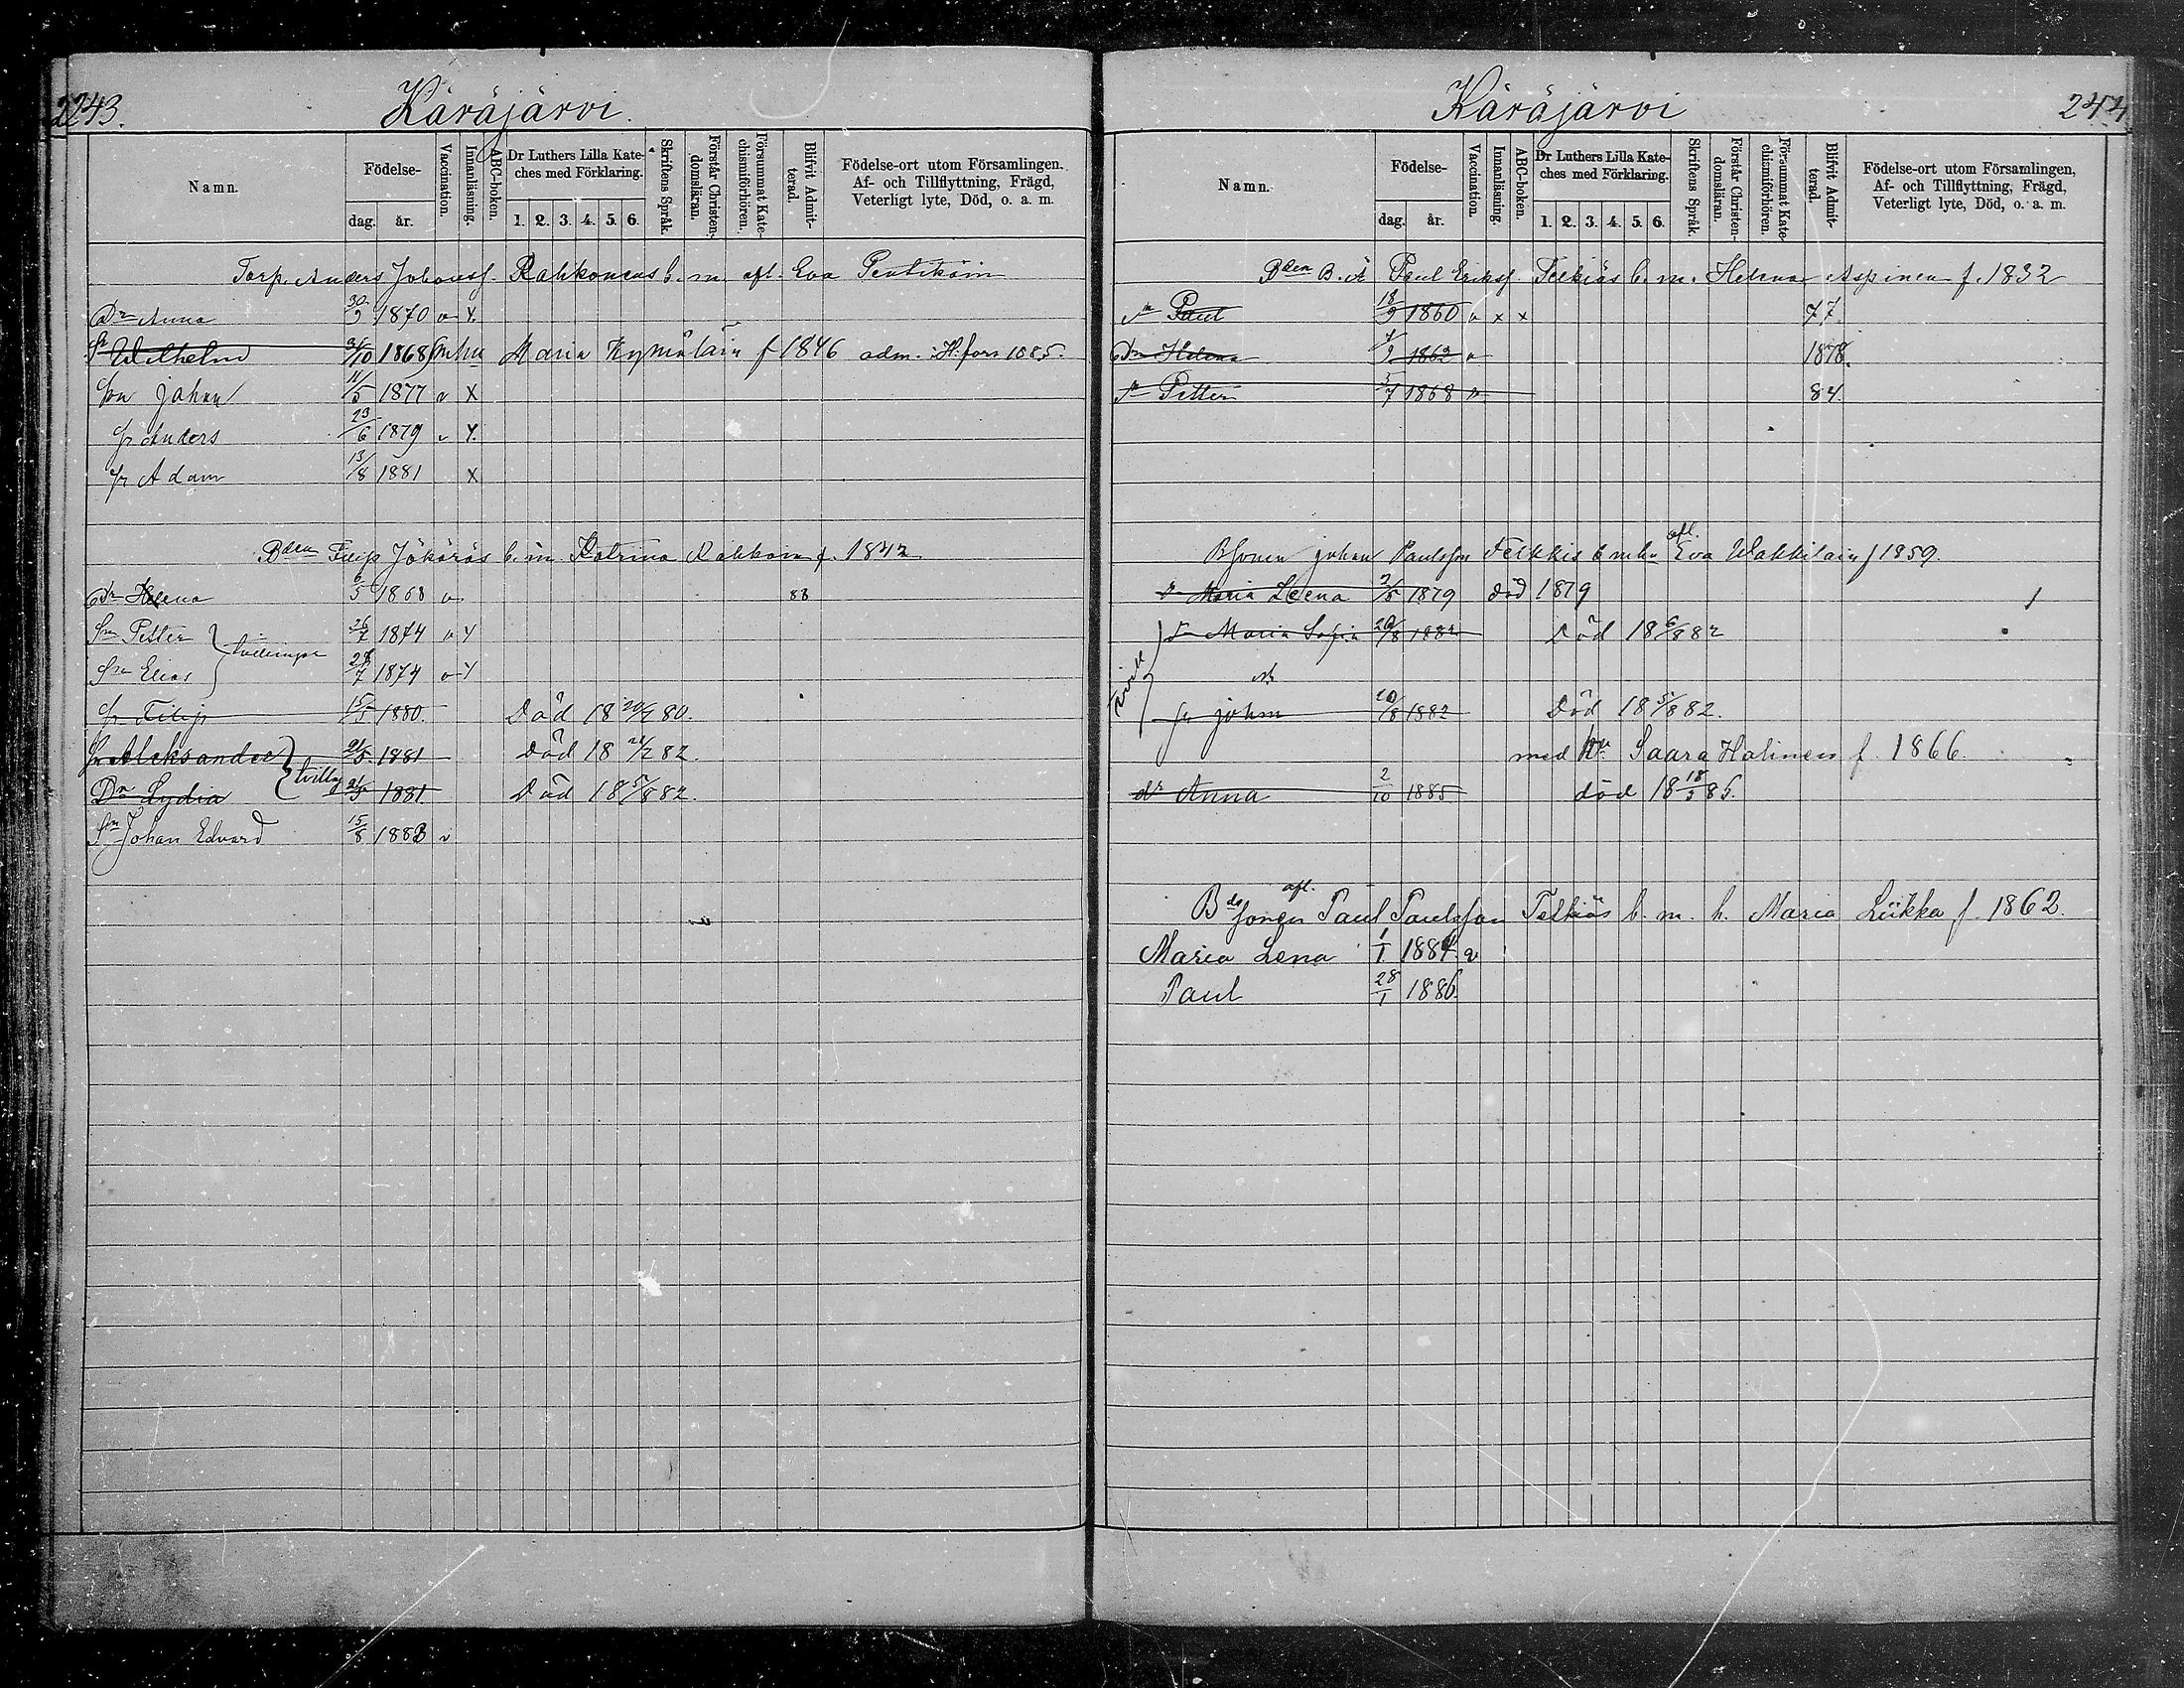 243.
Käräjärvi.
Namn.
Födelse-
dag. år.
Vaccination.
Innanläsning.
ABC-boken.
Dr Luthers Lilla Kate-
ches med Förklaring.
1. 2. 3. 4. 5. 6.
Skriftens Språk.
Förstår Christen-
domsläran.
Försummat Kate-
chismiförhören.
Blifvit Admit-
terad.
Födelse-ort utom Församlingen.
Af- och Tillflyttning, Frägd,
Veterligt lyte, Död, o. a. m.
Torp. Anders Johanss. Rahkonens b. m. afl. Eva
Dr Anna 30/9 1870 v
Sr Wilhelm /10 1868 Maria Kymäläin f 1846 adm. i H.fors 1885.
Sn Johan 11/5 1877 v X
Sr Anders 23/6 1879 v
Sr Adam 13/8 1881 X
Bden Filip Jökäräs b. m. Katrina Rahkoin f. 1842
Dr Helena 6/5 1868 v 88
Sn Petter 26/7 1874 v
tvillingar
Sn Elias 28/7 1874 v
Sr Filip 15/5 1880. Död 18 20/9 80.
Sr Aleksander 21/5 1881 Död 18 21/2 82.
tvillg
Dr Lydia 21/5 1881 Död 18 5/8 82.
Sn Johan Edvard 15/8 1883 v
Käräjärvi
244
Namn.
Födelse-
dag. år.
Vaccination.
Innanläsning.
ABC-boken.
Dr Luthers Lilla Kate-
ches med Förklaring.
1. 2. 3. 4. 5. 6.
Skriftens Språk.
Förstår Christen-
domsläran.
Försummat Kate-
chismiförhören.
Blifvit Admit-
terad.
Födelse-ort utom Församlingen,
Af- och Tillflyttning, Frägd,
Veterligt lyte, Död, o. a. m.
Bden B. Ä Paul Erikss. Telkiäs b. m. Helena f. 1832
Paul 18/9 1860 v x x 77.
Dr Helena /9 1862 v 1878.
Petter 5/7 1868 v 84.
afl.
Bsonen Johan Paulsson b mhu Eva Wakkilain f 1859.
Dr Maria Leena 2/5 1879 död 1879
Dr Maria Sofia 20/8 1882 Död 18 6/8 82
och
Sr Johan 20/8 1882 Död 18 5/8 82.
med hu Saara Halinen f. 1866.
dr Anna 2/10 1885 död 18 18/5 86.
afl.
Bdsonen Paul Paulsson Telkiäs b. m. h. Maria Liikka f. 1862.
Maria Lena 1/1 1884 v
Paul 28/1 1886.